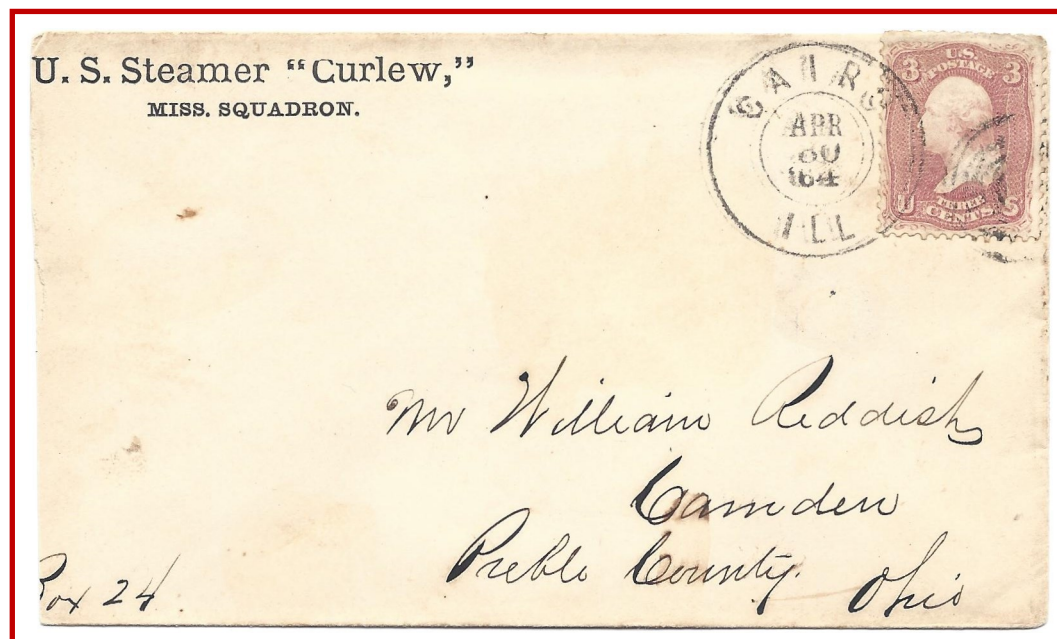 U. S. Steamer “Curlew,”
MISS. SQUADRON.
CAIRO
APR
30
64
ILL
3 U.S. 3
POSTAGE
U THREE S
CENTS
Mr William Reddish
Camden
Preble County.
Ohio
Box 24